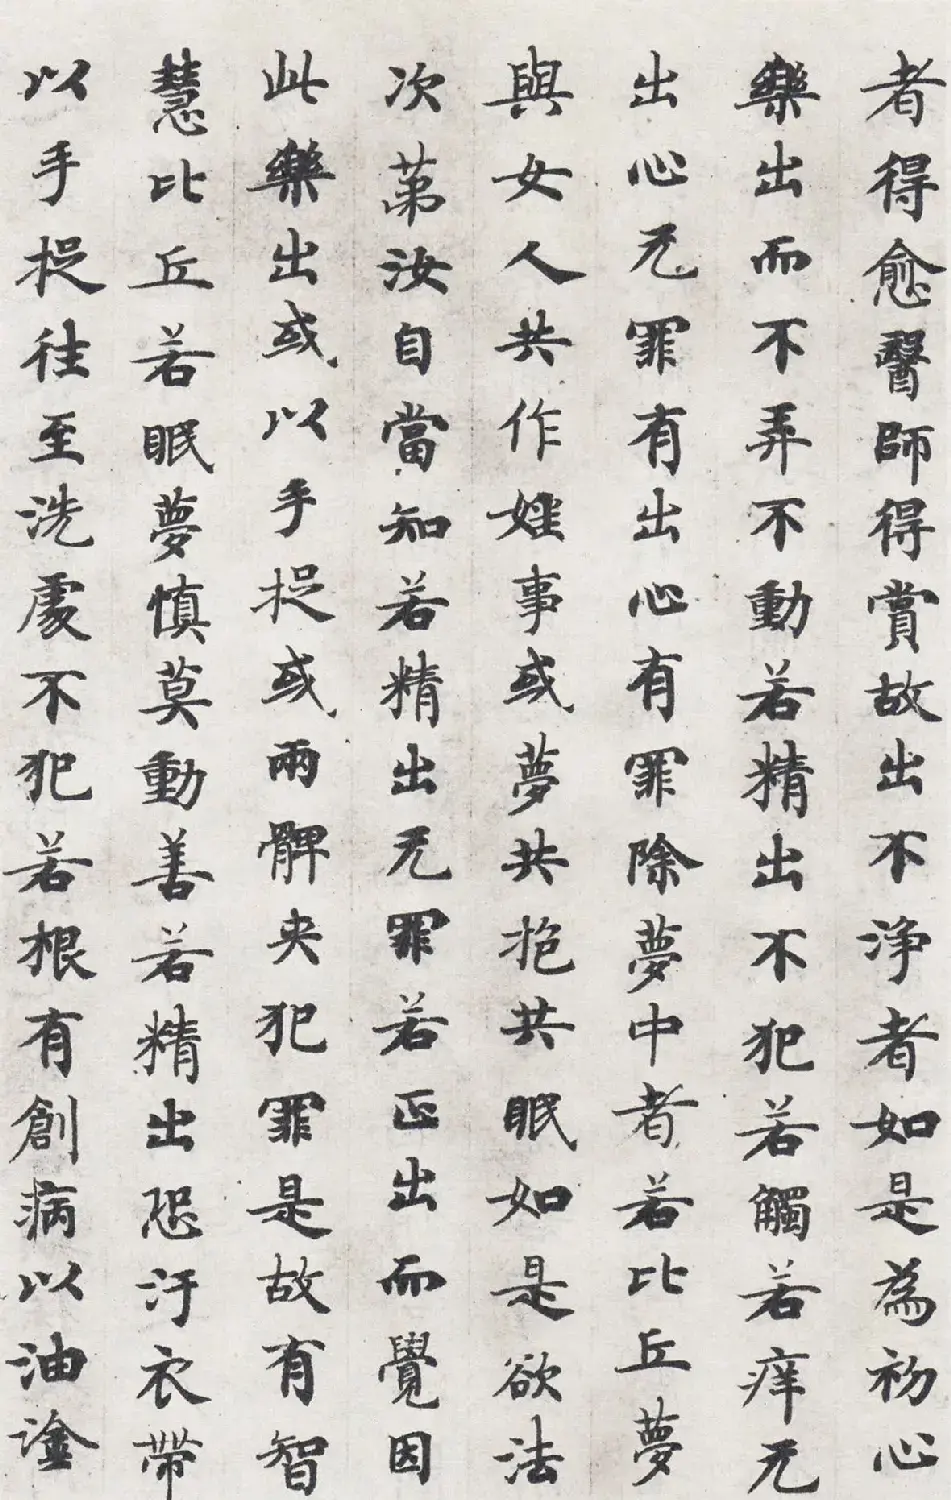 者得愈醫師得賞故出不淨者如是為初心
樂出而不弄不動若精出不犯若觸若痒无
出心无罪有出心有罪除夢中者若比丘夢
與女人共作婬事或夢共抱共眠如是欲法
次第汝自當知若精出无罪若正出而覺因
此樂出或以手捉或兩髀夾犯罪是故有智
慧比丘若眠夢慎莫動善若精出恐汙衣帶
以手捉往至洗處不犯若根有創病以油塗